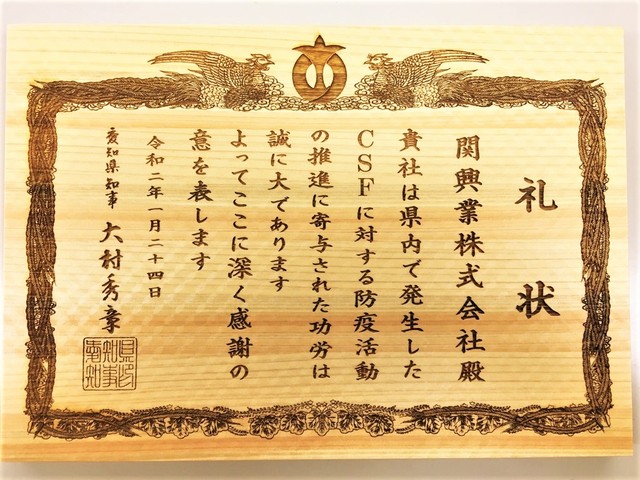 礼状
関興業株式会社殿
貴社は県内で発生した
CSFに対する防疫活動
の推進に寄与された功労は
誠に大であります
よってここに深く感謝の
意を表します
令和二年一月二十四日
愛知県知事 大村秀章
愛知県知事印